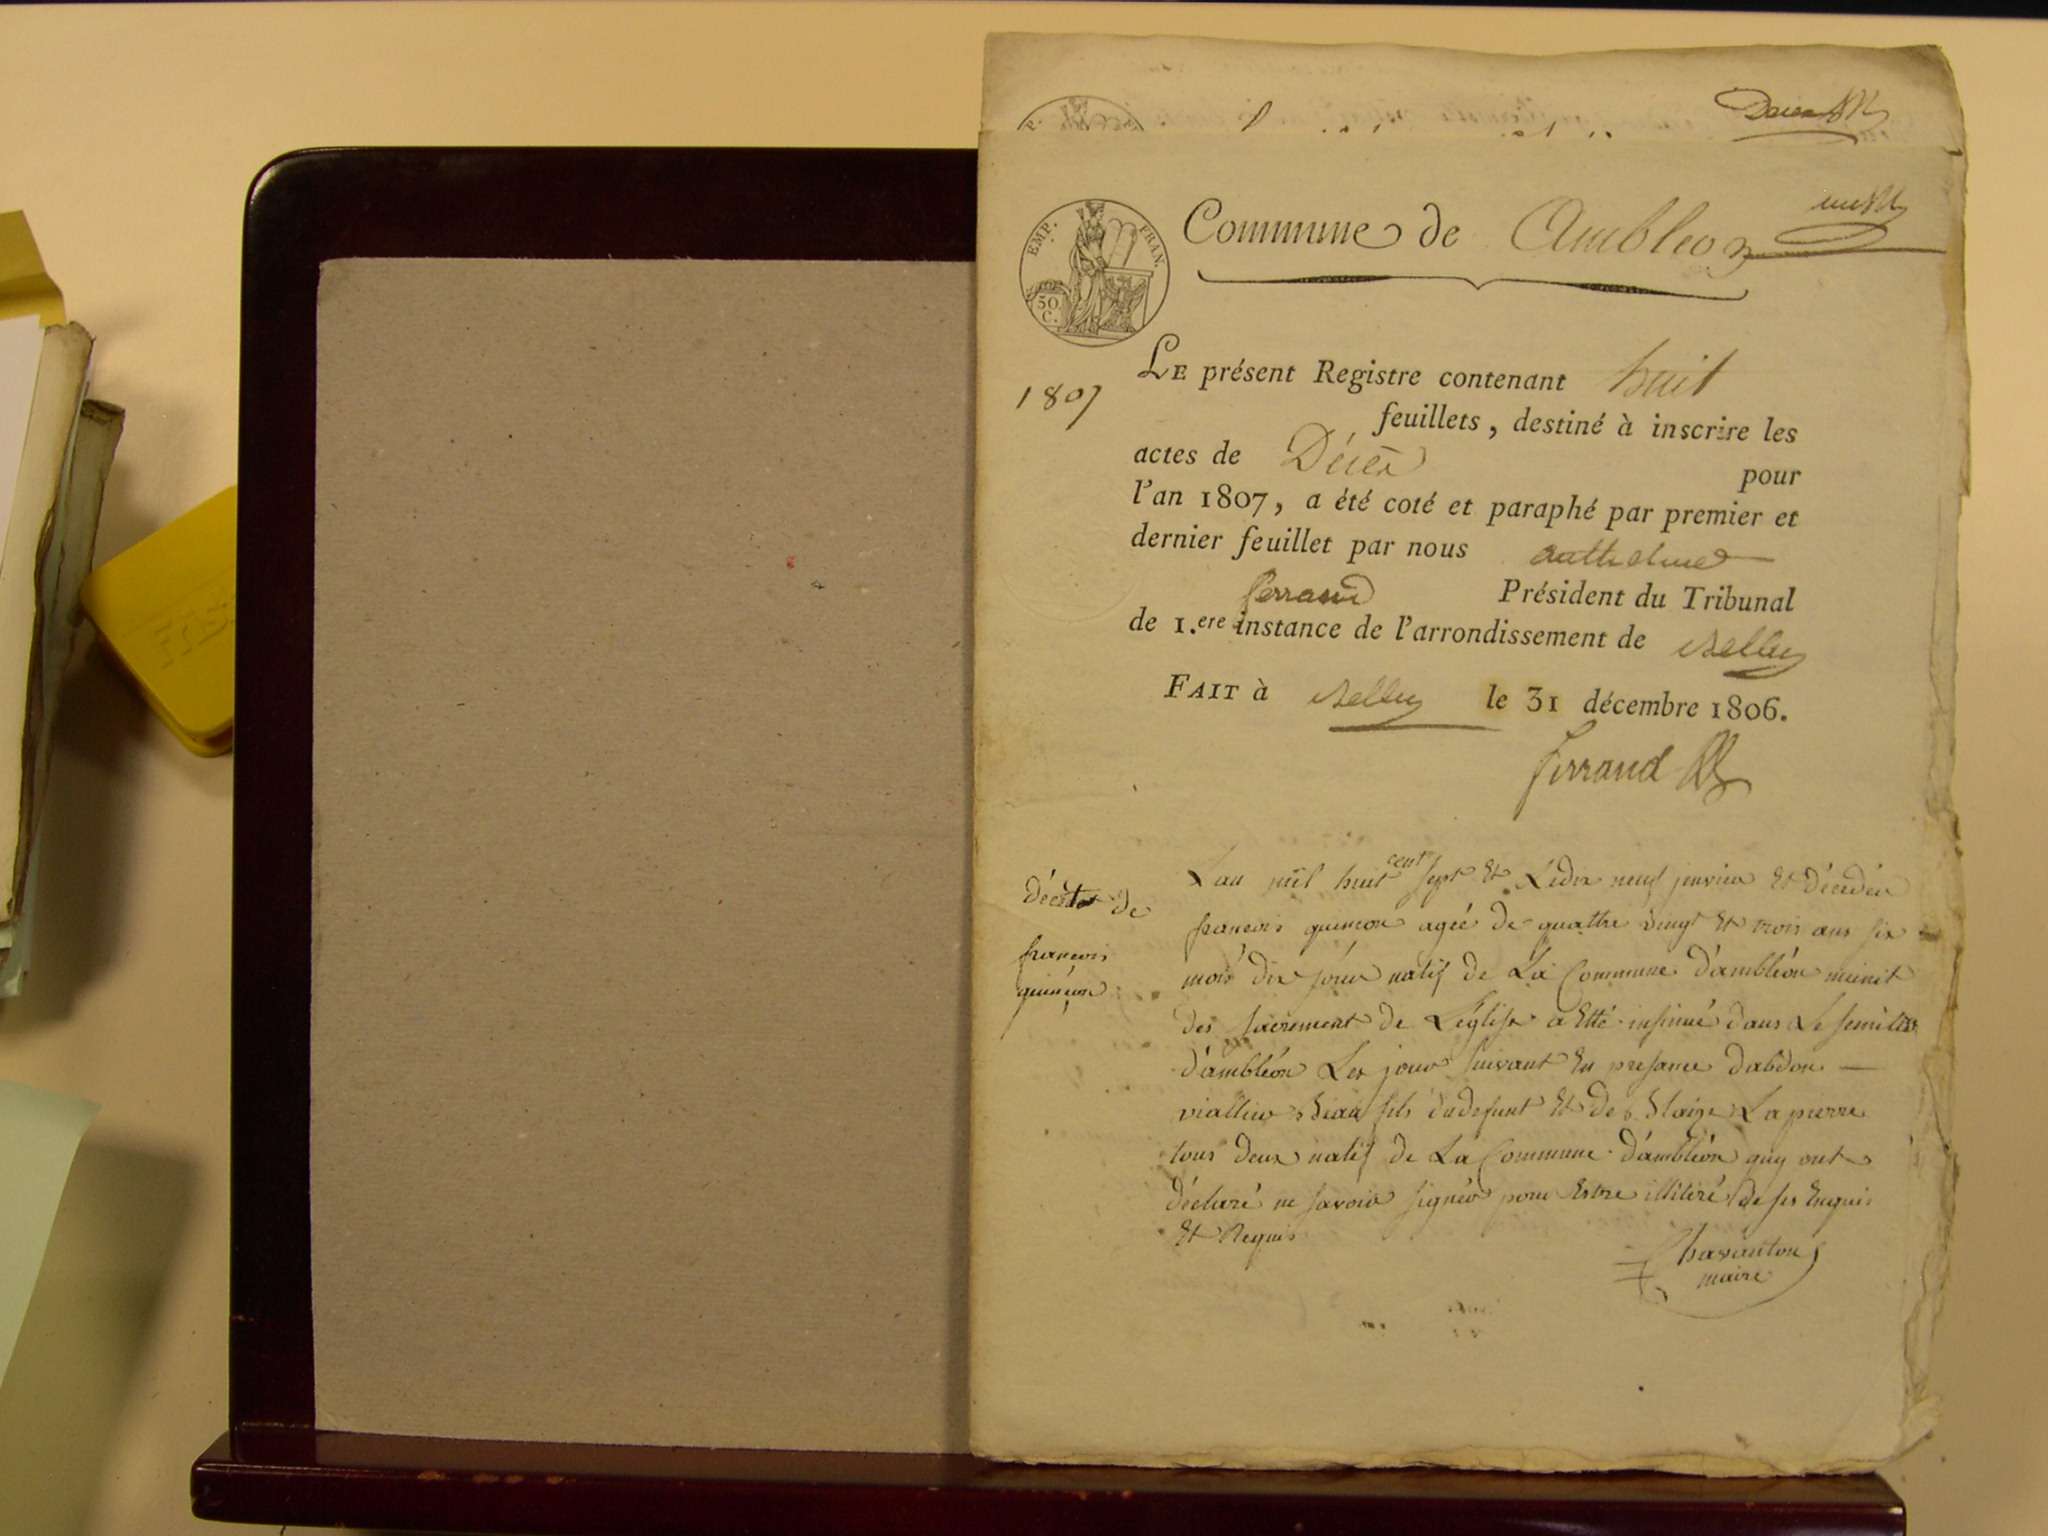 EMP. FRAN.
50 C.
Commune de Ambleon
1807
LE présent Registre contenant huit
feuillets, destiné à inscrire les
actes de Décès pour
l'an 1807, a été coté et paraphé par premier et
dernier feuillet par nous anthelme
ferrand Président du Tribunal
de 1.ere instance de l'arrondissement de Belley
FAIT à Belley le 31 décembre 1806.
ferrand
décès de
françois
quinçon
L'an mil huit cent sept et Le dix neuf janvier et décédéé
françois quinçon agéé de quattre vingt et trois ans six
mois dix jour natif de La Commune d'ambléon munit
des sacrement de L'église a Etté insinué dans Le
d'ambléon Les jour suivant En presance d'abdon
viallin Beau fils du defunt Et de Blaize Lapierre
tous deux natif de La Commune d'ambléon quy ont
déclaré ne savoir signér pour Estre illitiré de ses Enquis
Et Requis
Chavanton
maire